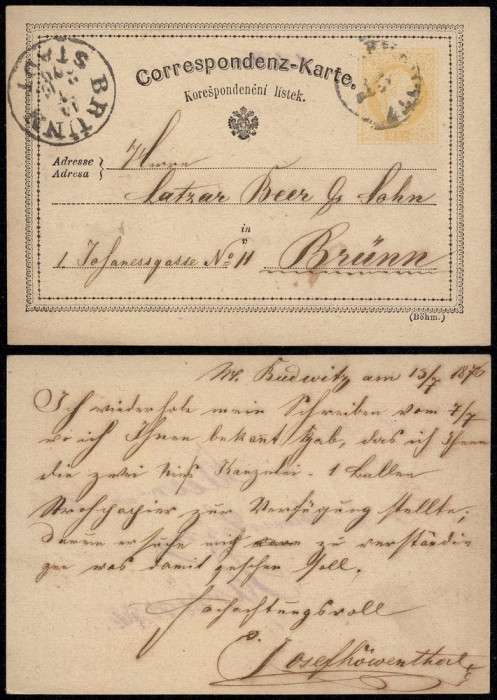 Correspondenz-Karte.
Korešpondenční lístek.
BRÜNN
STADT
Adresse
Adresa
Herrn
Latzar Beer & Sohn
in
v
1 Johanessgasse No 11 Brünn
(Böhm.)
M. Budwitz am 13/7 187
Ich wiederhole mein Schreiben vom 7/7
wo ich Ihnen bekant gab, das ich Ihnen
die zwei Kanzelei. 1 Ballen
Strohpapier zur Verfügung stellte;
darum ersuche mich zu verständi
gen was damit geschen soll.
Hochachtungsvoll
Josef Löwenthal